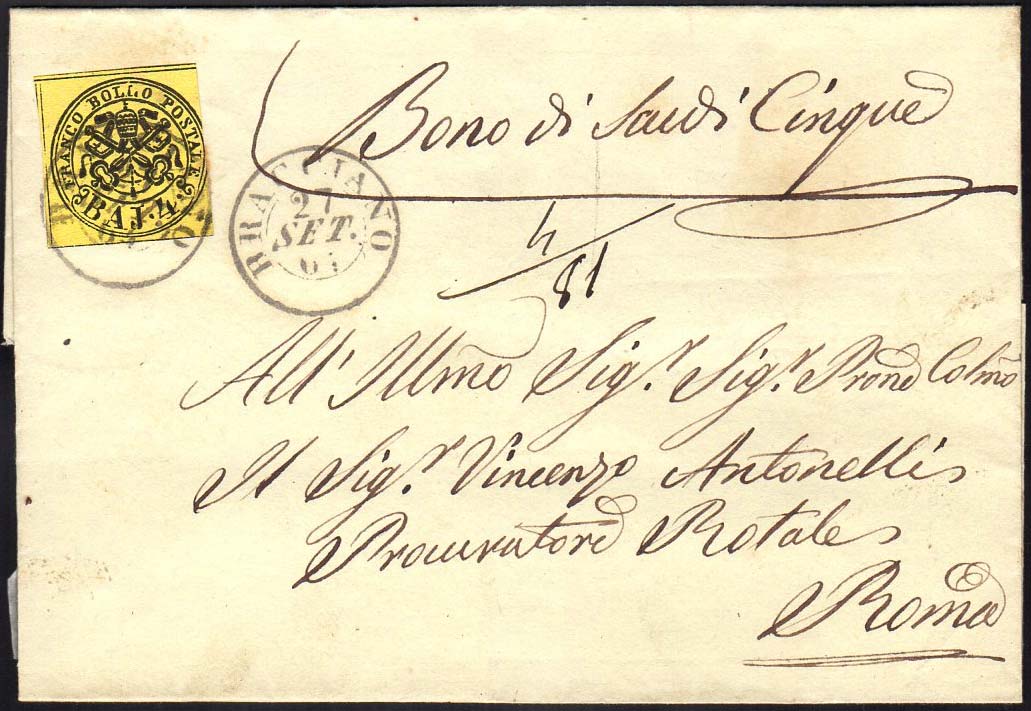 FRANCO BOLLO POSTALE
BAJ. 4
Bono di Scudi Cinque
BRACCIANO
27
SET.
4/81
All' Illmo Sig.r Sig.r Prone Colmo
Il Sig.r Vincenzo Antonelli
Procuratore Rotale
Roma